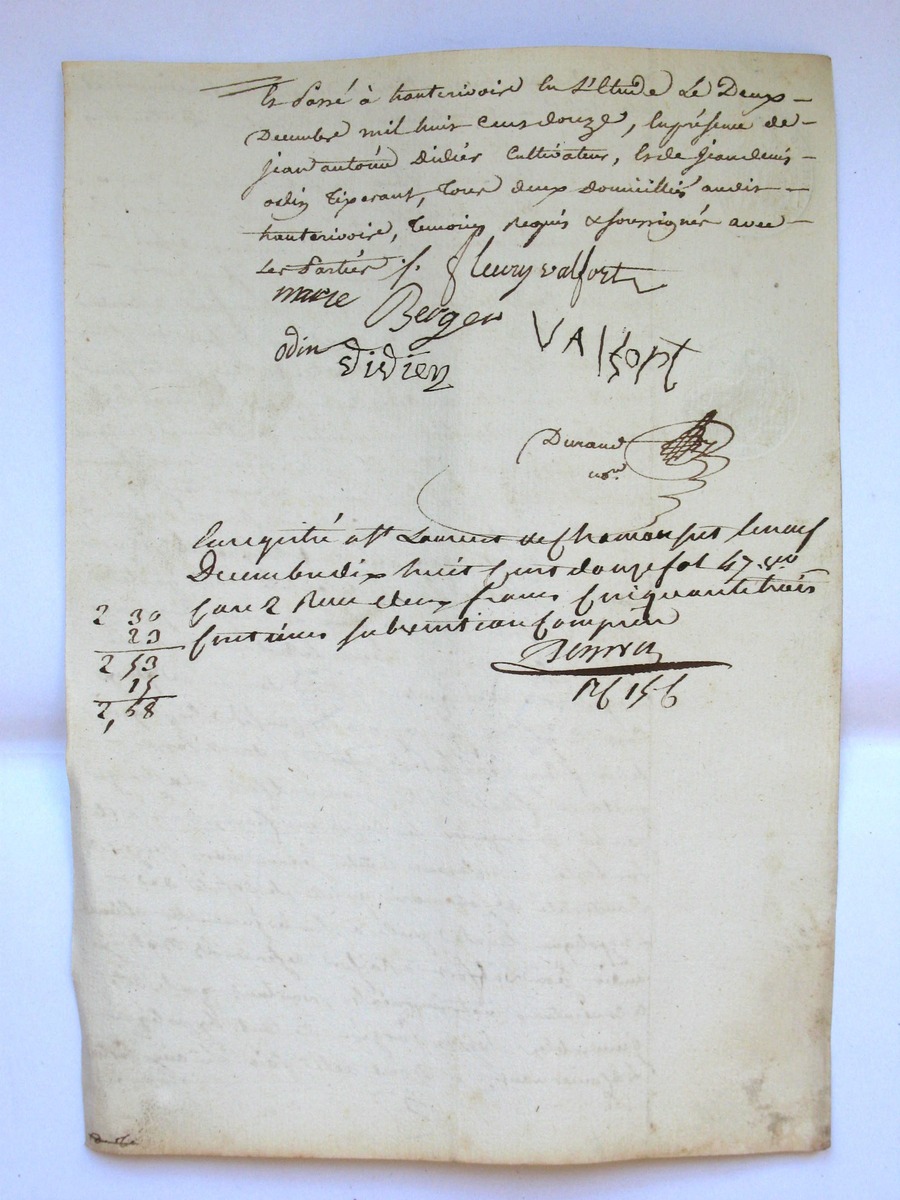 Et Passé à hauterivoire En L'Etude Le Deux
Decembre mil huit Cent douze, En présence de
Jean antoine Didier Cultivateur, Et de Jean denis
odin Tixerant, Tous deux Domicilliés audit
hauterivoire, Temoins Requis & soussignés avec
Les Partiés /.
fleury valfort
marie Berger
VAlfort
odin
didier
Durand
nore
Enregistré a St Laurent de Chamousset le neuf
Decembre dix huit Cent douze fol 47 vo
Case 2 Recu deux francs Cinquante trois
Centimes subvention Comprise
2 30
23
2 53
15
2,68